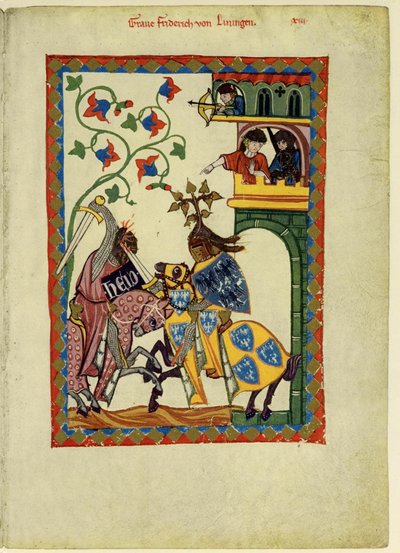 Grave Friderich von Liningen. xiii.